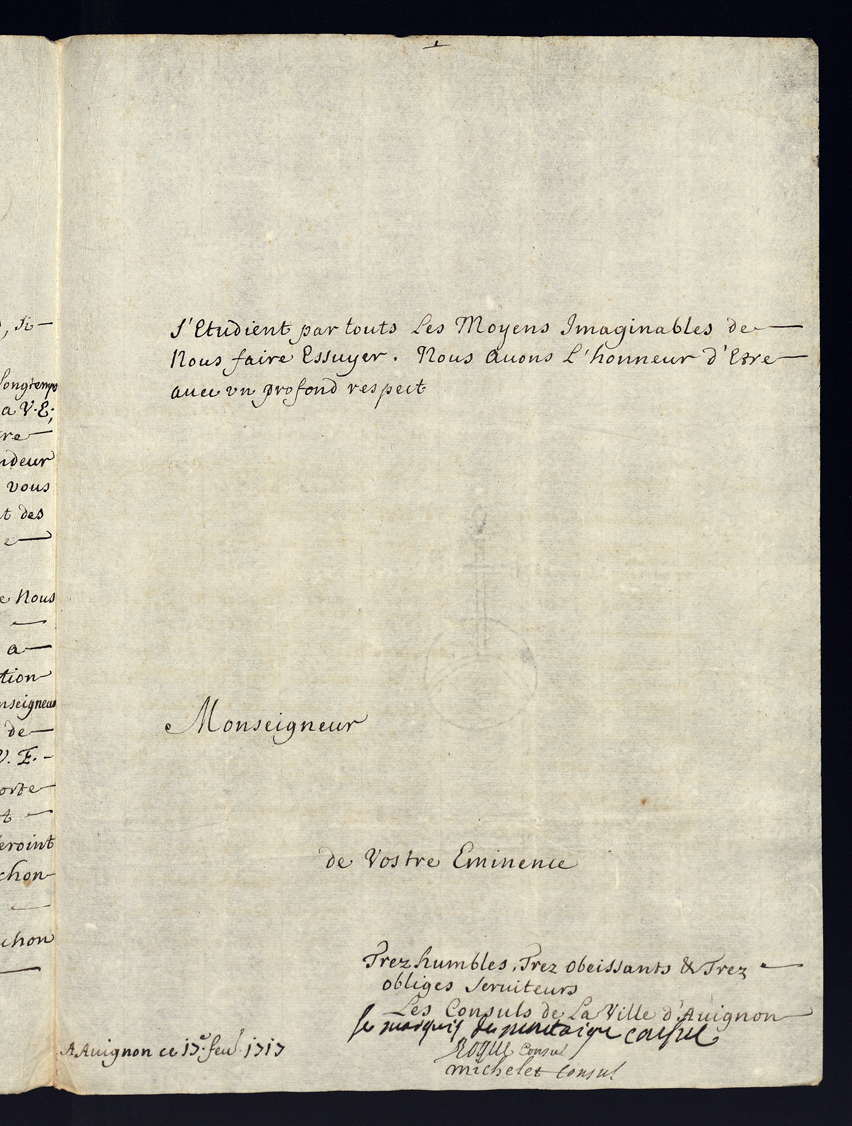 , si
longtemps
a V. E;
re
ndeur
vous
t des
e
e Nous
a
tion
nseigneur
de
V. E.
orte
t
eroint
chon
chon
S'Etudient par touts Les Moyens Imaginables de
Nous faire Essuyer. Nous Auons L'honneur d'Estre
auec vn profond respect
Monseigneur
de Vostre Eminence
Trez humbles, Trez obeissants & Trez
obliges Seruiteurs
Les Consuls de La Ville d'Auignon
le marquis consul
Rogue Consul
michelet Consul
A Auignon ce 17e. feur. 1717